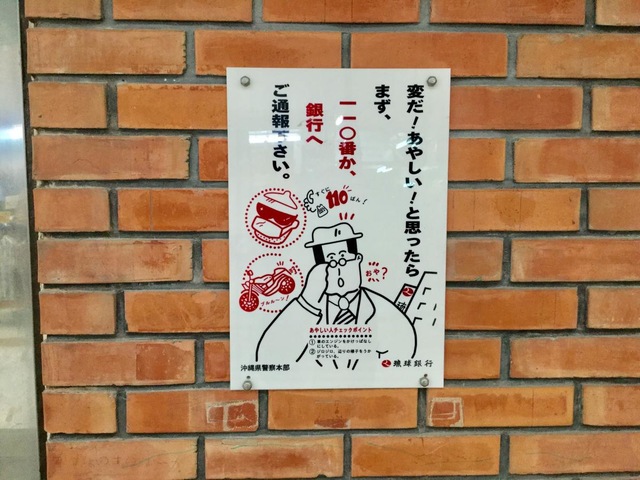 変だ!あやしい!と思ったら
まず、
一一〇番か、
銀行へ
ご通報下さい。
すぐに
110
ばん!
おや?
ブルルーン!
あやしい人チェックポイント
① 車のエンジンをかけっぱなし
にしている。
② ジロジロ、辺りの様子をうか
がっている。
沖縄県警察本部
琉球銀行